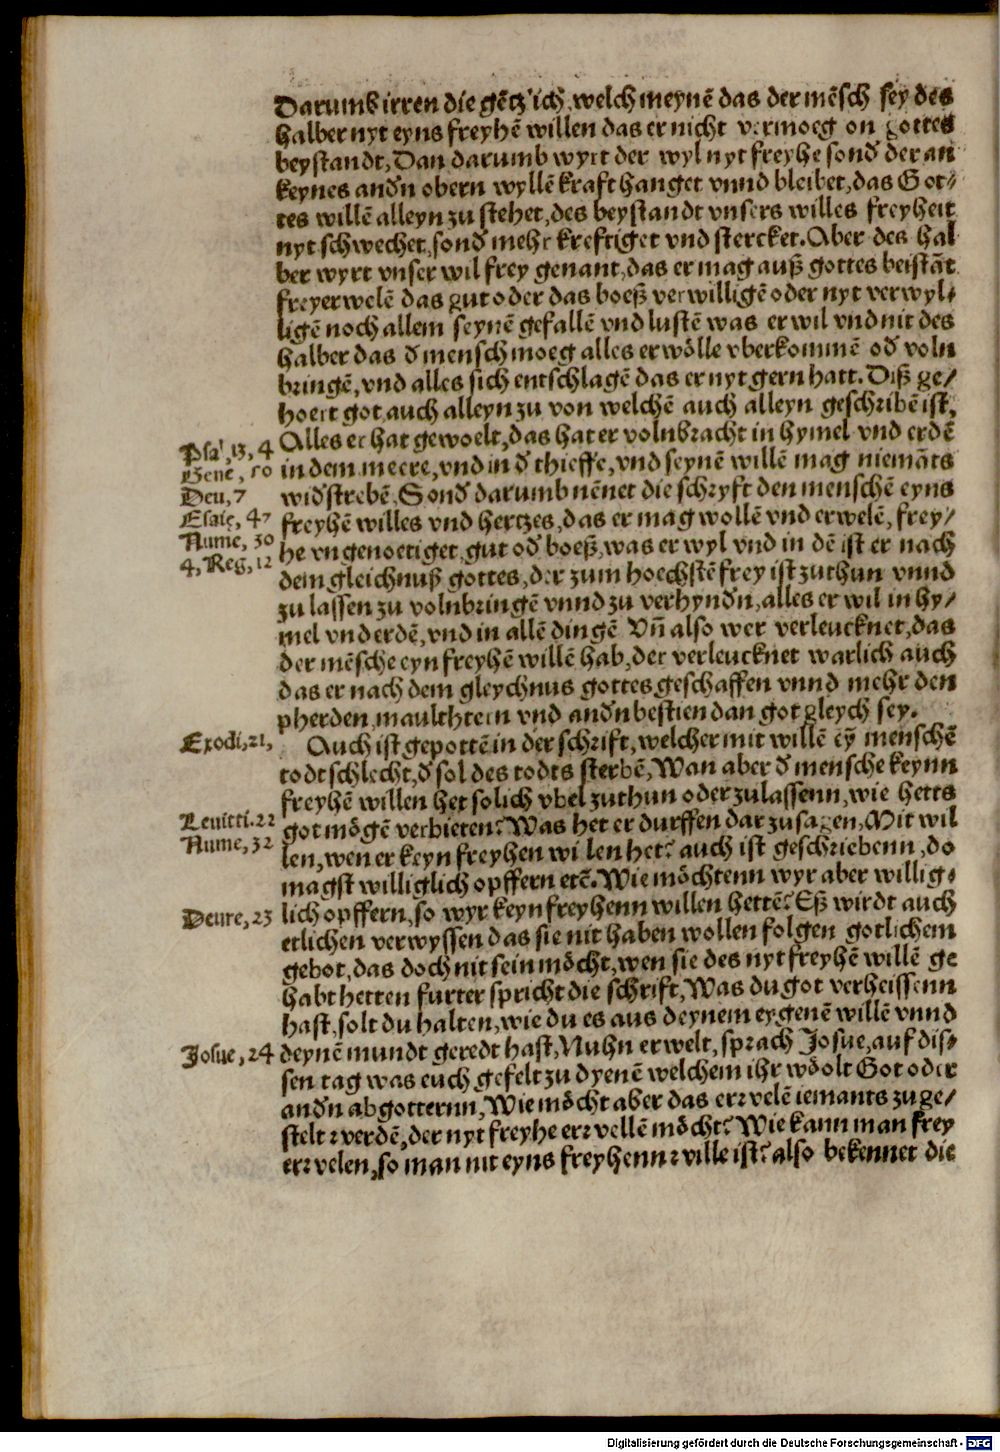 Darumb irren die gẽtzlich welch meynẽ das der mẽsch sey des
halber nyt eyns freyhẽ willen das er nicht vermoeg on gottes
beystandt, Dan darumb wyrt der wyl nyt freyhe sonđ der an
keynes andn obern wyllẽ kraft hanget vnnd bleibet, das Got⸗
tes willẽ alleyn zu stehet, des beystandt vnsers willes freyheit
nyt schwechet, sonđ mehr kreftiget vnd stercket. Aber des hal
ber wyrt vnser wil frey genant, das er mag auß gottes beistãt
freyerwelẽ das gut oder das boeß verwilligẽ oder nyt verwyl⸗
ligẽ noch allem seynẽ gefallẽ vnd lustẽ was er wil vnd nit des
halber das đ mensch moeg alles er wölle vberkommẽ ođ voln
bringẽ, vnd alles sich entschlagẽ das er nyt gern hatt. Diß ge⸗
hoert got auch alleyn zu von welchẽ auch alleyn geschribẽ ist,
Alles er hat gewoelt, das hat er volnbracht in hymel vnd erdẽ
in dem meere, vnd in đ thieffe, vnd seynẽ willẽ mag niemãts
widstrebẽ, Sonđ darumb nẽnet die schryft den menschẽ eyns
freyhẽ willes vnd hertzes, das er mag wollẽ vnd erwelẽ, frey⸗
he vngenoetiget, gut ođ boeß, was er wyl vnd in dẽ ist er nach
dem gleichnuß gottes, der zum hoechstẽ frey ist zuthun vnnd
zu lassen zu volnbringẽ vnnd zu verhyndn, alles er wil in hy⸗
mel vnd erdẽ, vnd in allẽ dingẽ Vñ also wer verleucknet, das
der mẽsche eyn freyhẽ willẽ hab, der verleucknet warlich auch
das er nach dem gleychnus gottes geschaffen vnnd mehr den
pherden maulthtern vnd andn bestien dan got gleych sey.
Auch ist gepottẽ in der schrift, welcher mit willẽ eỹ menschẽ
todt schlecht, đ sol des todts sterbẽ, Wan aber đ mensche keynn
freyhẽ willen het solich vbel zuthun oder zulassenn, wie hetts
got mögẽ verbieten? Was het er durffen dar zu sagen, Mit wil
len, wen er keyn freyhen willen het? auch ist geschriebenn, do
magst williglich opffern etẽ. Wie möchtenn wyr aber willig⸗
lich opffern, so wyr keyn freyhenn willen hettẽ? Eß wirdt auch
etlichen verwyssen das sie nit haben wollen folgen gotlichem
gebot, das doch nit sein möcht, wen sie des nyt freyhẽ willẽ ge
habt hetten furter spricht die schrift, Was du got verheissenn
hast, solt du halten, wie du es aus deynem eygenẽ willẽ vnnd
deynẽ mundt geredt hast, Nuhn erwelt, sprach Josue, auf dis⸗
sen tag was euch gefelt zu dyenẽ welchem ihr wöolt Got oder
andn abgotternn, Wie möcht aber das erwelẽ iemants zu ge⸗
stelt werdẽ, der nyt freyhe erwellẽ möcht? Wie kann man frey
erwelen, so man nit eyns freyhenn wille ist? also bekennet die
Psal, 13, 4
Gene, 50
Deu, 7
Esaie, 47
Nume, 30
4, Reg, 12
Exodi, 21,
Leuitti. 22
Nume, 32
Deute, 23
Josue, 24
Digitalisierung gefördert durch die Deutsche Forschungsgemeinschaft - DFG